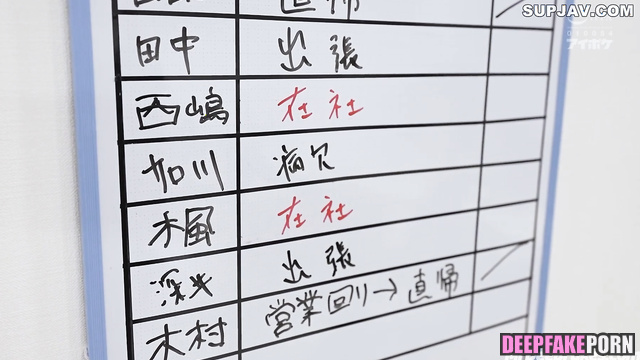 SUPJAV.COM
直帰
アイポケ
田中 出張
西嶋 在社
加川 病欠
楓 在社
深井 出張
木村 営業回り→直帰
DEEPFAKEPORN